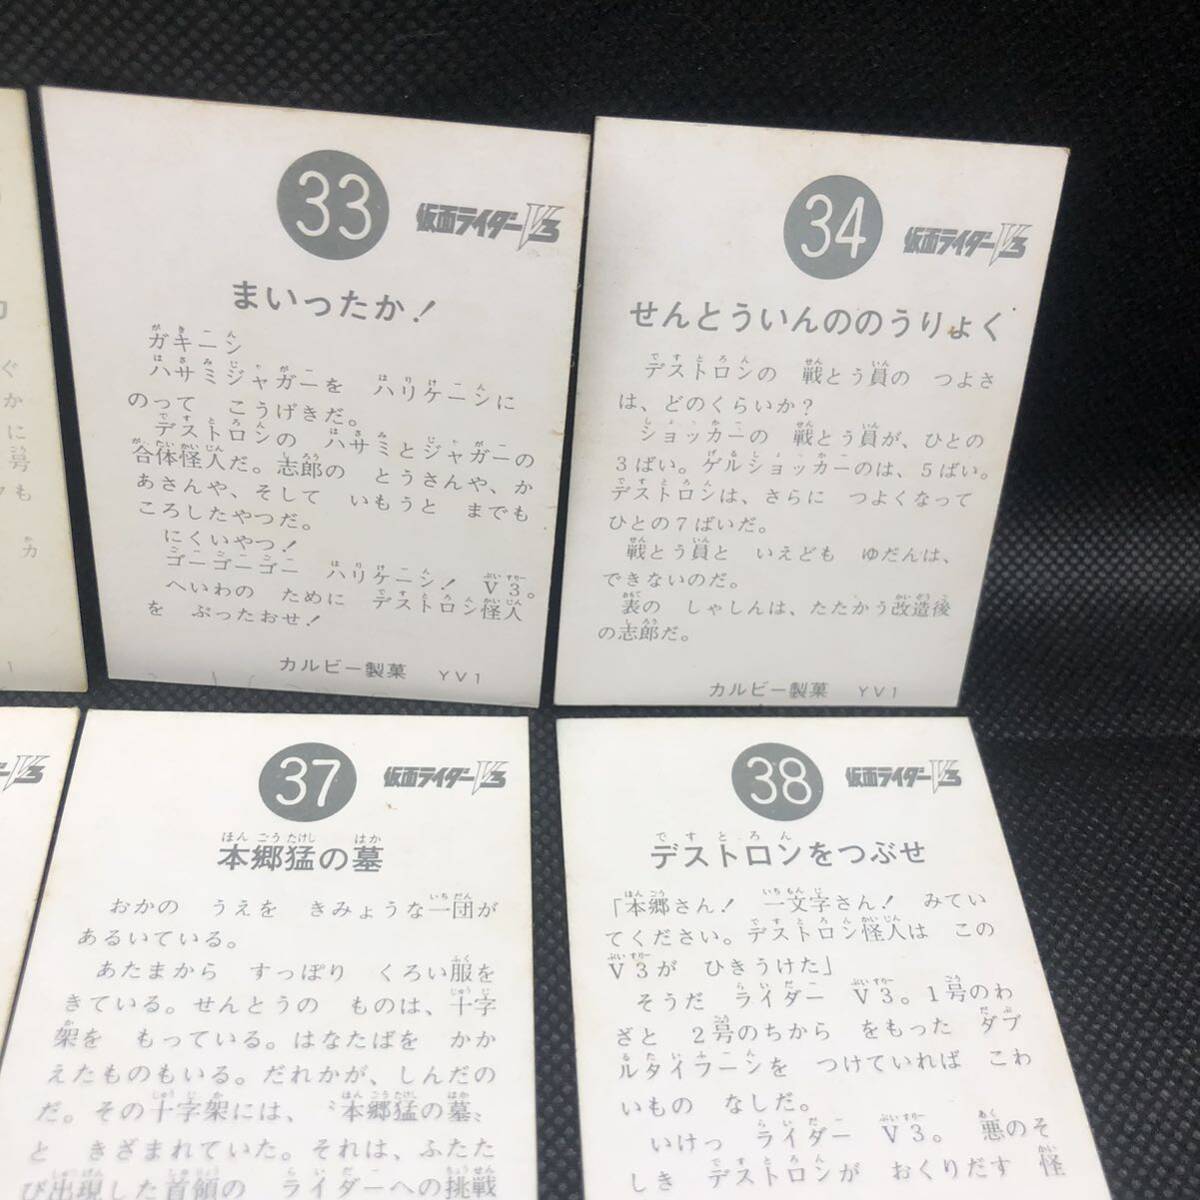 33
仮面ライダーV3
まいったか！
ガキーン
ハサミジャガーを　ハリケーンに
のって　こうげきだ。
デストロンの　ハサミとジャガーの
合体怪人だ。志郎の　とうさんや、か
あさんや、そして　いもうと　までも
ころしたやつだ。
にくいやつ！
ゴーゴーゴー　ハリケーン！　V3。
へいわの　ために　デストロン怪人
を　ぶったおせ！
カルビー製菓　YV1
34
仮面ライダーV3
せんとういんののうりょく
デストロンの　戦とう員の　つよさ
は、どのくらいか？
ショッカーの　戦とう員が、ひとの
3ばい。ゲルショッカーのは、5ばい。
デストロンは、さらに　つよくなって
ひとの7ばいだ。
戦とう員と　いえども　ゆだんは、
できないのだ。
表の　しゃしんは、たたかう改造後
の志郎だ。
カルビー製菓　YV1
37
仮面ライダーV3
本郷猛の墓
おかの　うえを　きみょうな一団が
あるいている。
あたまから　すっぽり　くろい服を
きている。せんとうの　ものは、十字
架を　もっている。はなたばを　かか
えたものもいる。だれかが、しんだの
だ。その十字架には、〝本郷猛の墓〟
と　きざまれていた。それは、ふたた
び出現した首領の　ライダーへの挑戦
38
仮面ライダーV3
デストロンをつぶせ
「本郷さん！　一文字さん！　みてい
てください。デストロン怪人は　この
V3が　ひきうけた」
そうだ　ライダー　V3。1号のわ
ざと　2号のちから　をもった　ダブ
ルタイフーンを　つけていれば　こわ
いもの　なしだ。
いけっ　ライダー　V3。　悪のそ
しき　デストロンが　おくりだす　怪